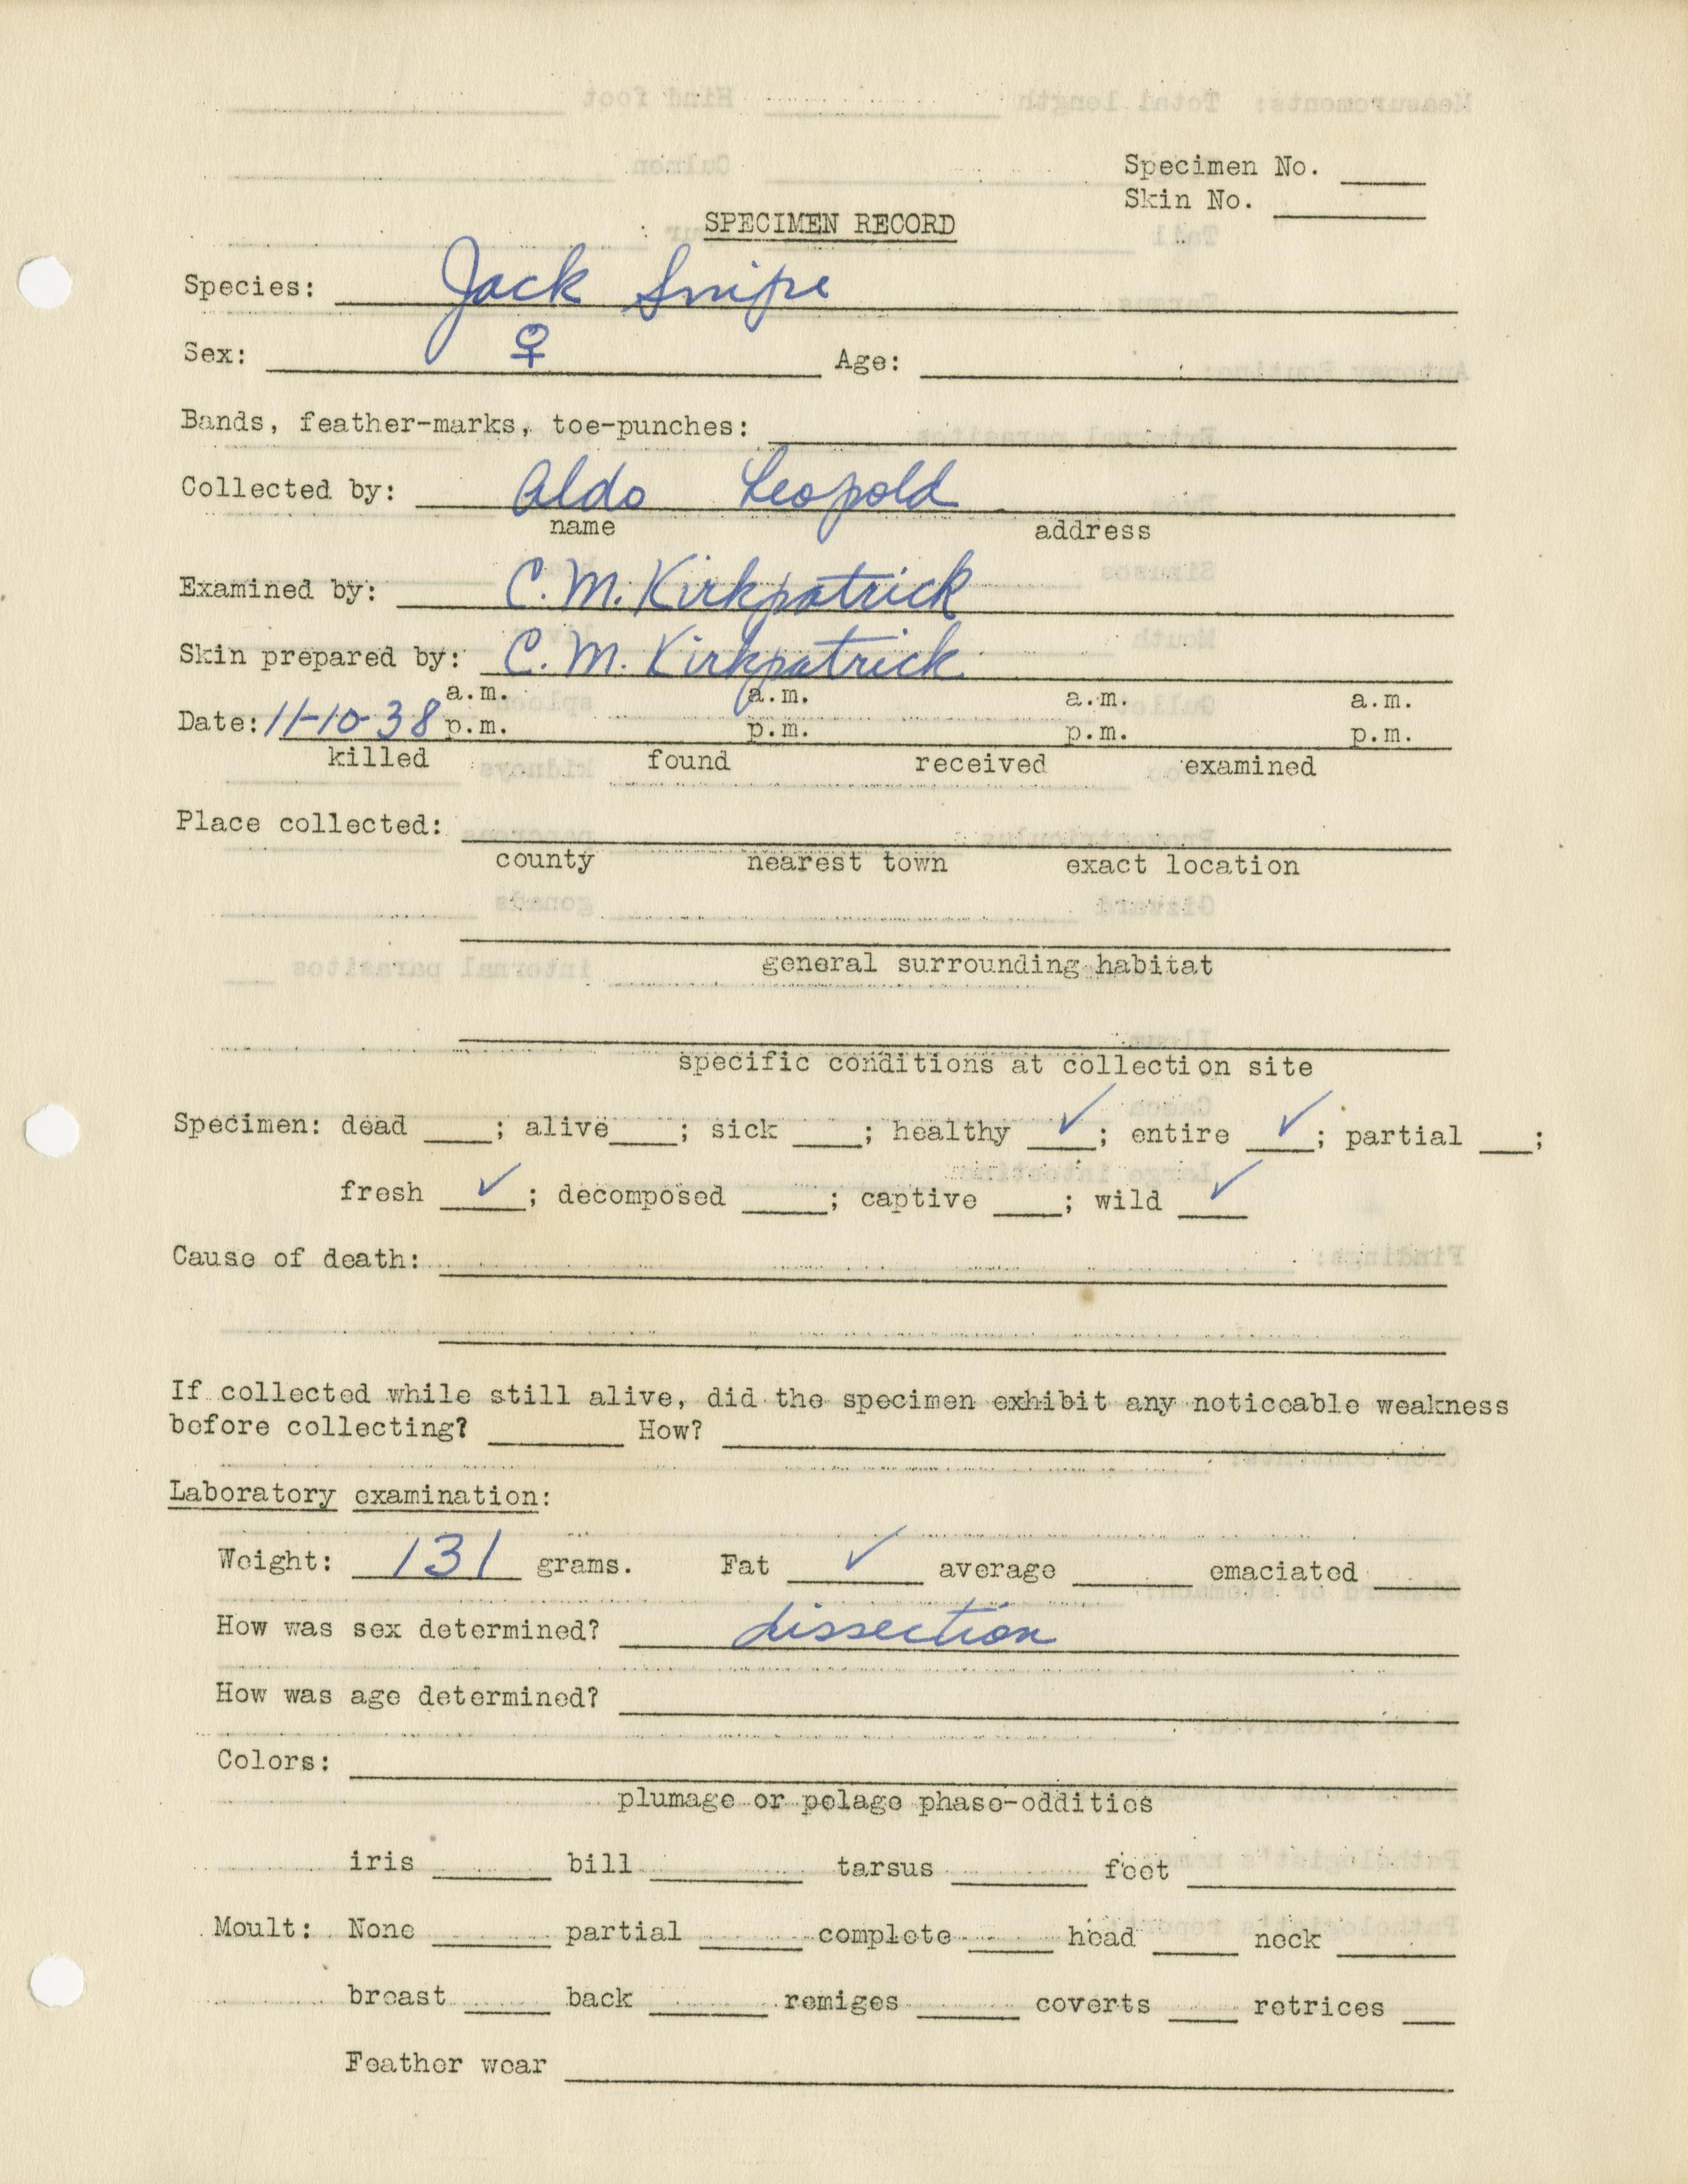 Specimen No. ____
Skin No. ____
SPECIMEN RECORD
Species: Jack Snipe
Sex: ♀ Age: ____
Bands, feather-marks, toe-punches: ____
Collected by: Aldo Leopold
name address
Examined by: C. M. Kirkpatrick
Skin prepared by: C. M. Kirkpatrick
a.m. a.m. a.m. a.m.
Date: 11-10-38 p.m. p.m. p.m. p.m.
killed found received examined
Place collected: ____
county nearest town exact location
general surrounding habitat
specific conditions at collection site
Specimen: dead ____; alive ____; sick ____; healthy ✓; entire ✓; partial ____;
fresh ✓; decomposed ____; captive ____; wild ✓
Cause of death: ____
If collected while still alive, did the specimen exhibit any noticeable weakness
before collecting? ____ How? ____
Laboratory examination:
Weight: 131 grams. Fat ✓ average ____ emaciated ____
How was sex determined? dissection
How was age determined? ____
Colors: ____
plumage or pelage phase-oddities
iris ____ bill ____ tarsus ____ foot ____
Moult: None ____ partial ____ complete ____ head ____ neck ____
breast ____ back ____ remiges ____ coverts ____ retrices ____
Feather wear ____